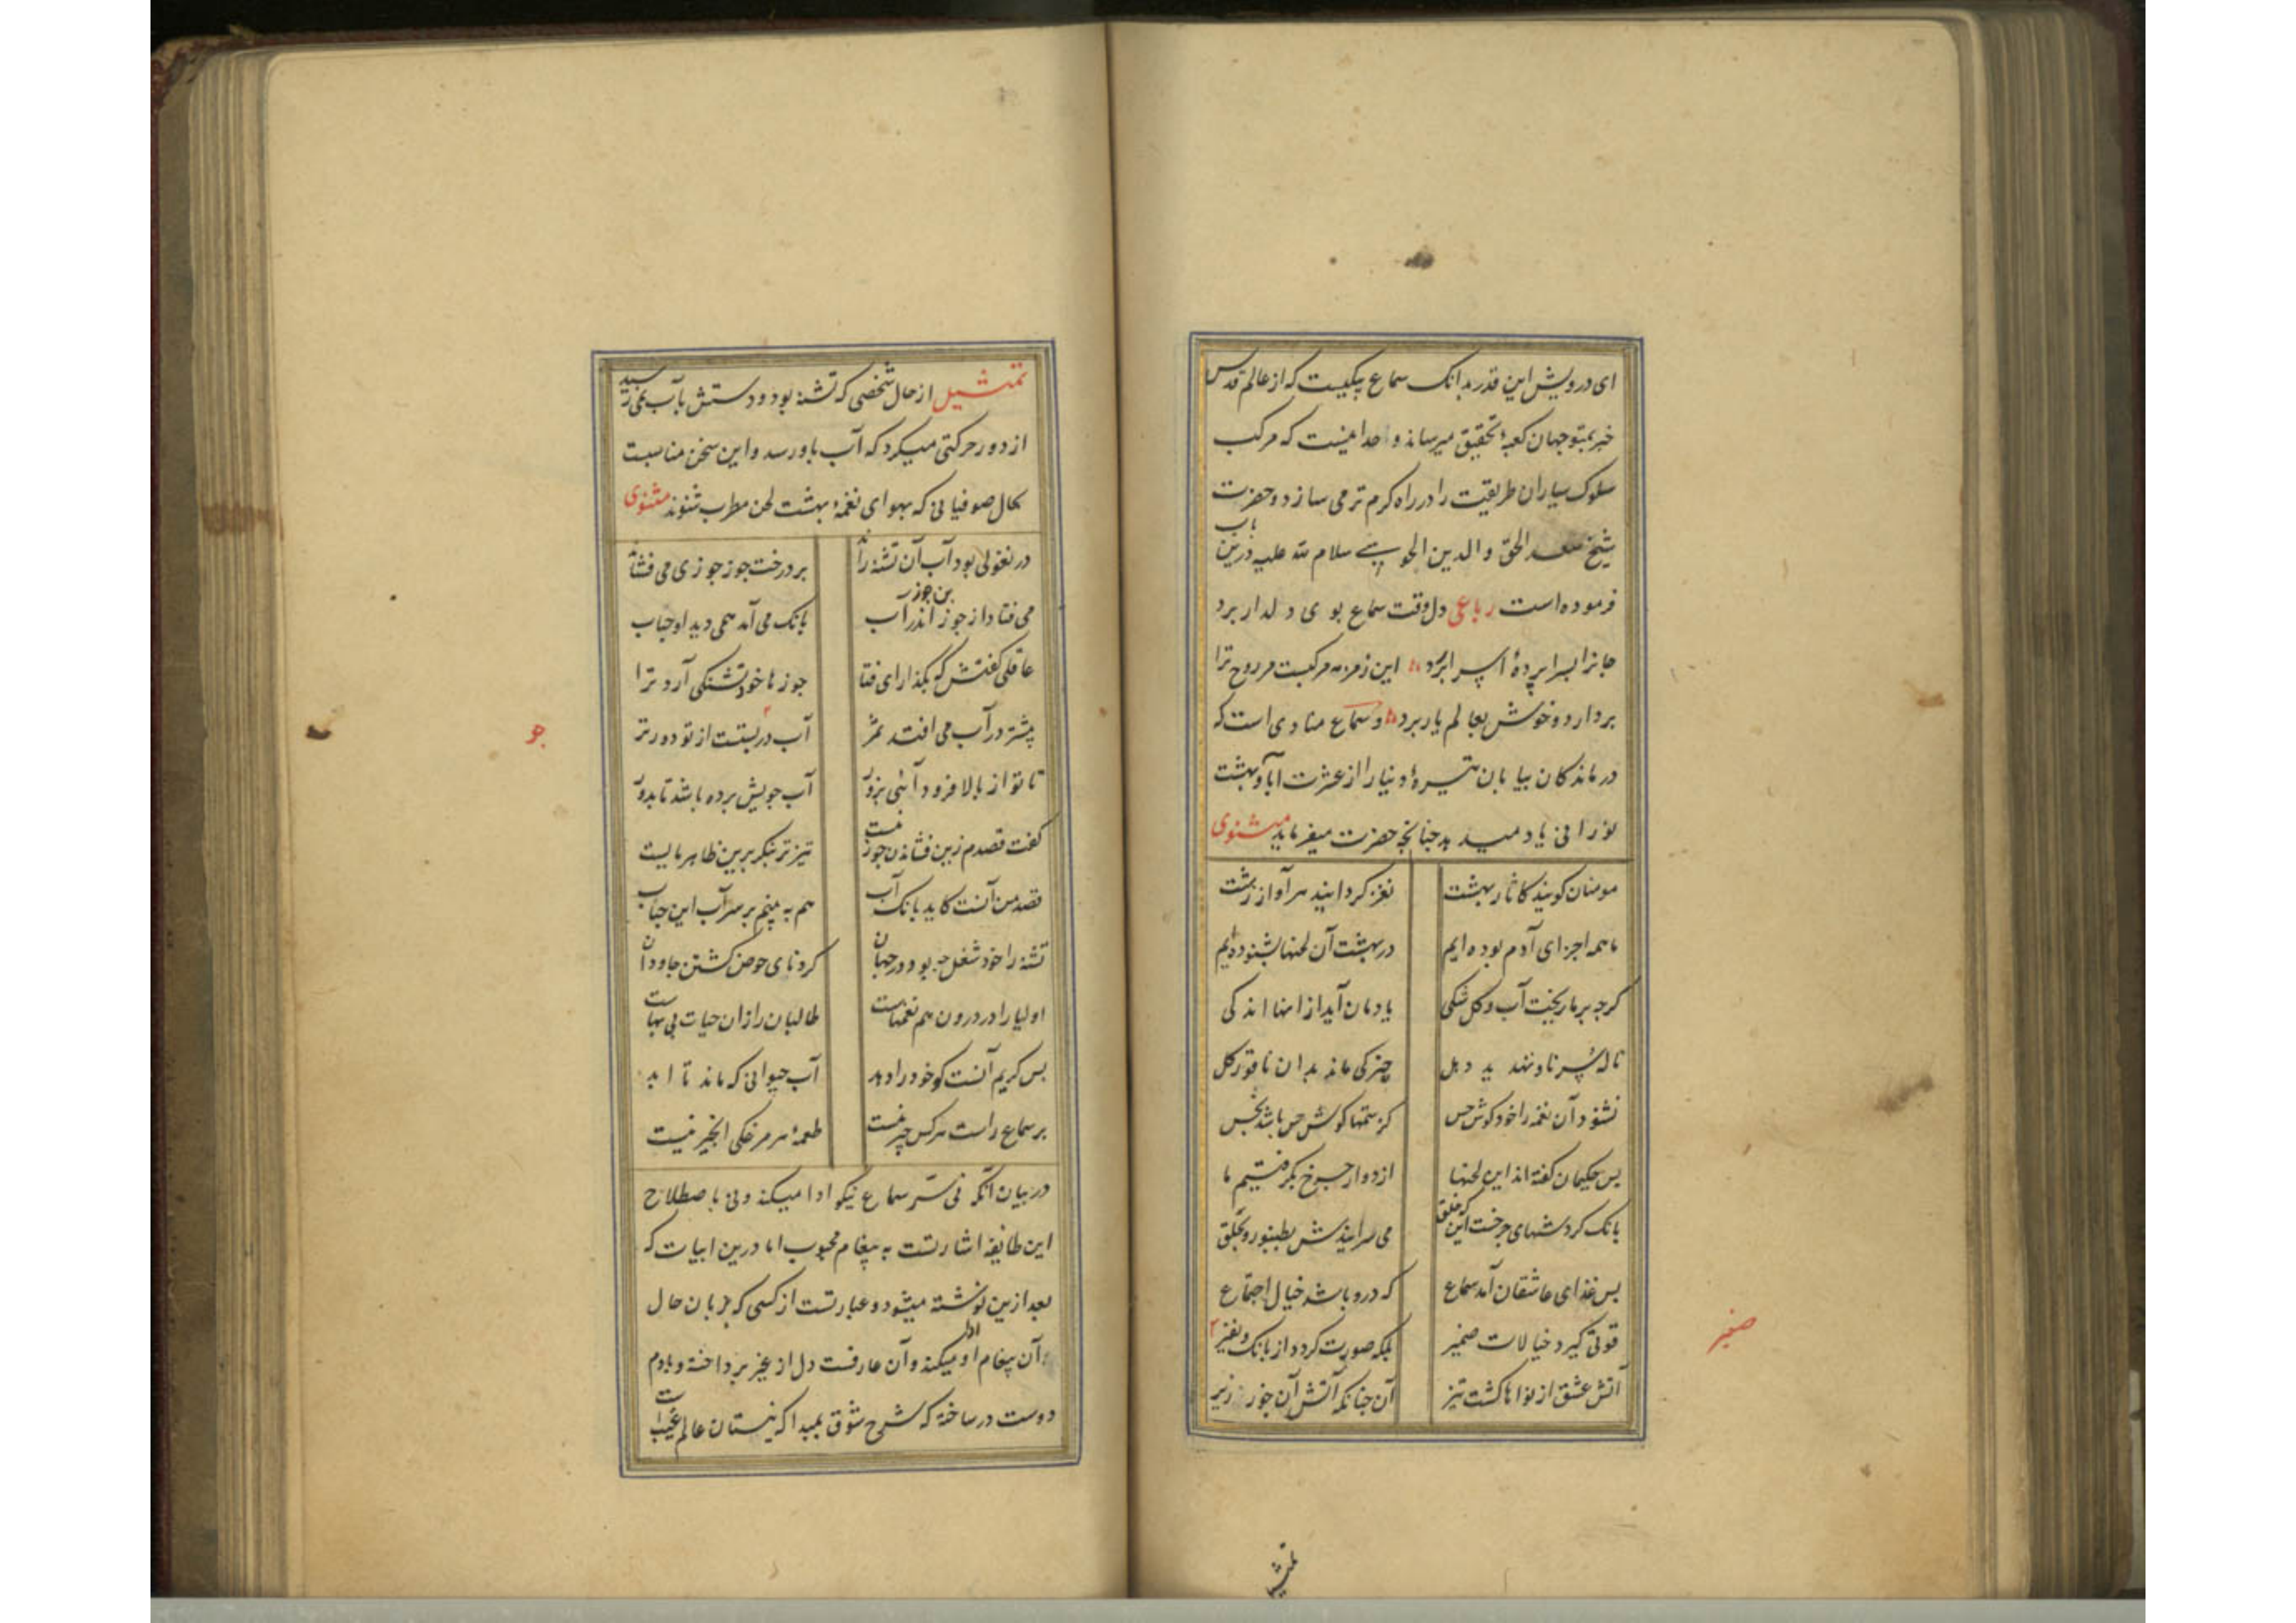 ای درویش این قدر بدانک سماع پیکیست که از عالم قدس
خبر بمتوجهان کعبهٔ تحقیق میرساند و حدا ئیست که مرکب
سلوک سیاران طریقت را در راه کرم تر می سازد و حضرت
شیخ سعد الحق و الدین الحمویی سلام الله علیه درین باب
فرموده است رباعی دل وقت سماع بوی دلدار برد
جانرا بسراپردهٔ اسرار برد این زمزمه مرکبیست مر روح ترا
بردارد و خوش بعالم یار برد و سماع منادی است که
درماندکان بیابان تیرهٔ دنیا را از عشرت آباد بهشت
نورانی یاد میدهد چنانچه حضرت میفرماید مثنوی
مومنان کویند کاثار بهشت
نغز کردانید هر آواز زشت
ما همه اجزای آدم بوده ایم
در بهشت آن لحنها بشنوده ایم
کرچه بر ما ریخت آب و کل شکی
یادمان آید از آنها اندکی
ناله سرنا و تهدید دهل
چیزکی ماند بدان ناقور کل
نشنود آن نغمه را خود کوش حس
کز ستمها کوش حس باشد نجس
پس حکیمان کفته اند این لحنها
از دوار چرخ بکرفتیم ما
بانک کردشهای چرخست این که خلق
می سرایندش بطنبور و بحلق
پس غذای عاشقان آمد سماع
که درو باشد خیال اجتماع
قوتی کیرد خیالات ضمیر
بلکه صورت کردد از بانک و نفیر
صفیر
آتش عشق از نواها کشت تیز
آن چنانکه آتش آن جوز ریز
تمثیل
تمثیل از حال شخصی که تشنه بود و دستش بآب نمی رسید
از دور حرکتی میکرد که آب باو رسد و این سخن مناسبت
بحال صوفیانی که بهوای نغمهٔ بهشت لحن مطرب شنوند مثنوی
در نغولی بود آب آن تشنه راند
بر درخت جوز جوزی می فشاند
می فتاد از جوز بن جوز اندر آب
بانک می آمد همی دید او حباب
عاقلی کفتش که بکذار ای فتا
جوزها خود تشنکی آرد ترا
بیشتر در آب می افتد ثمر
آب در پستیست از تو دور تر
تا تو از بالا فرود آئی بزور
آب جویش برده باشد تا بدور
جو
کفت قصدم زین فشاندن جوز نیست
تیزتر بنکر برین ظاهر مایست
قصد من آنست کاید بانک آب
هم به بینم بر سر آب این حباب
تشنه را خود شغل چه بود در جهان
کرد پای حوض کشتن جاودان
اولیا را در درون هم نغمهاست
طالبان را زان حیات بی بهاست
بس کریم آنست کو خود را دهد
آب حیوانی که ماند تا ابد
بر سماع راست هر کس چیر نیست
طعمهٔ هر مرغکی انجیر نیست
در بیان آنکه نی سر سماع نیکو ادا میکند و نی باصطلاح
این طایفه اشارتست به پیغام محبوب اما درین ابیات که
بعد ازین نوشته میشود عبارتست از کسی که بزبان حال
آن پیغام او ادا میکند و آن عارفست دل از غیر پرداخته و با دم
دوست در ساخته که شرح شوق بمبدا که نیستان عالم غیب است